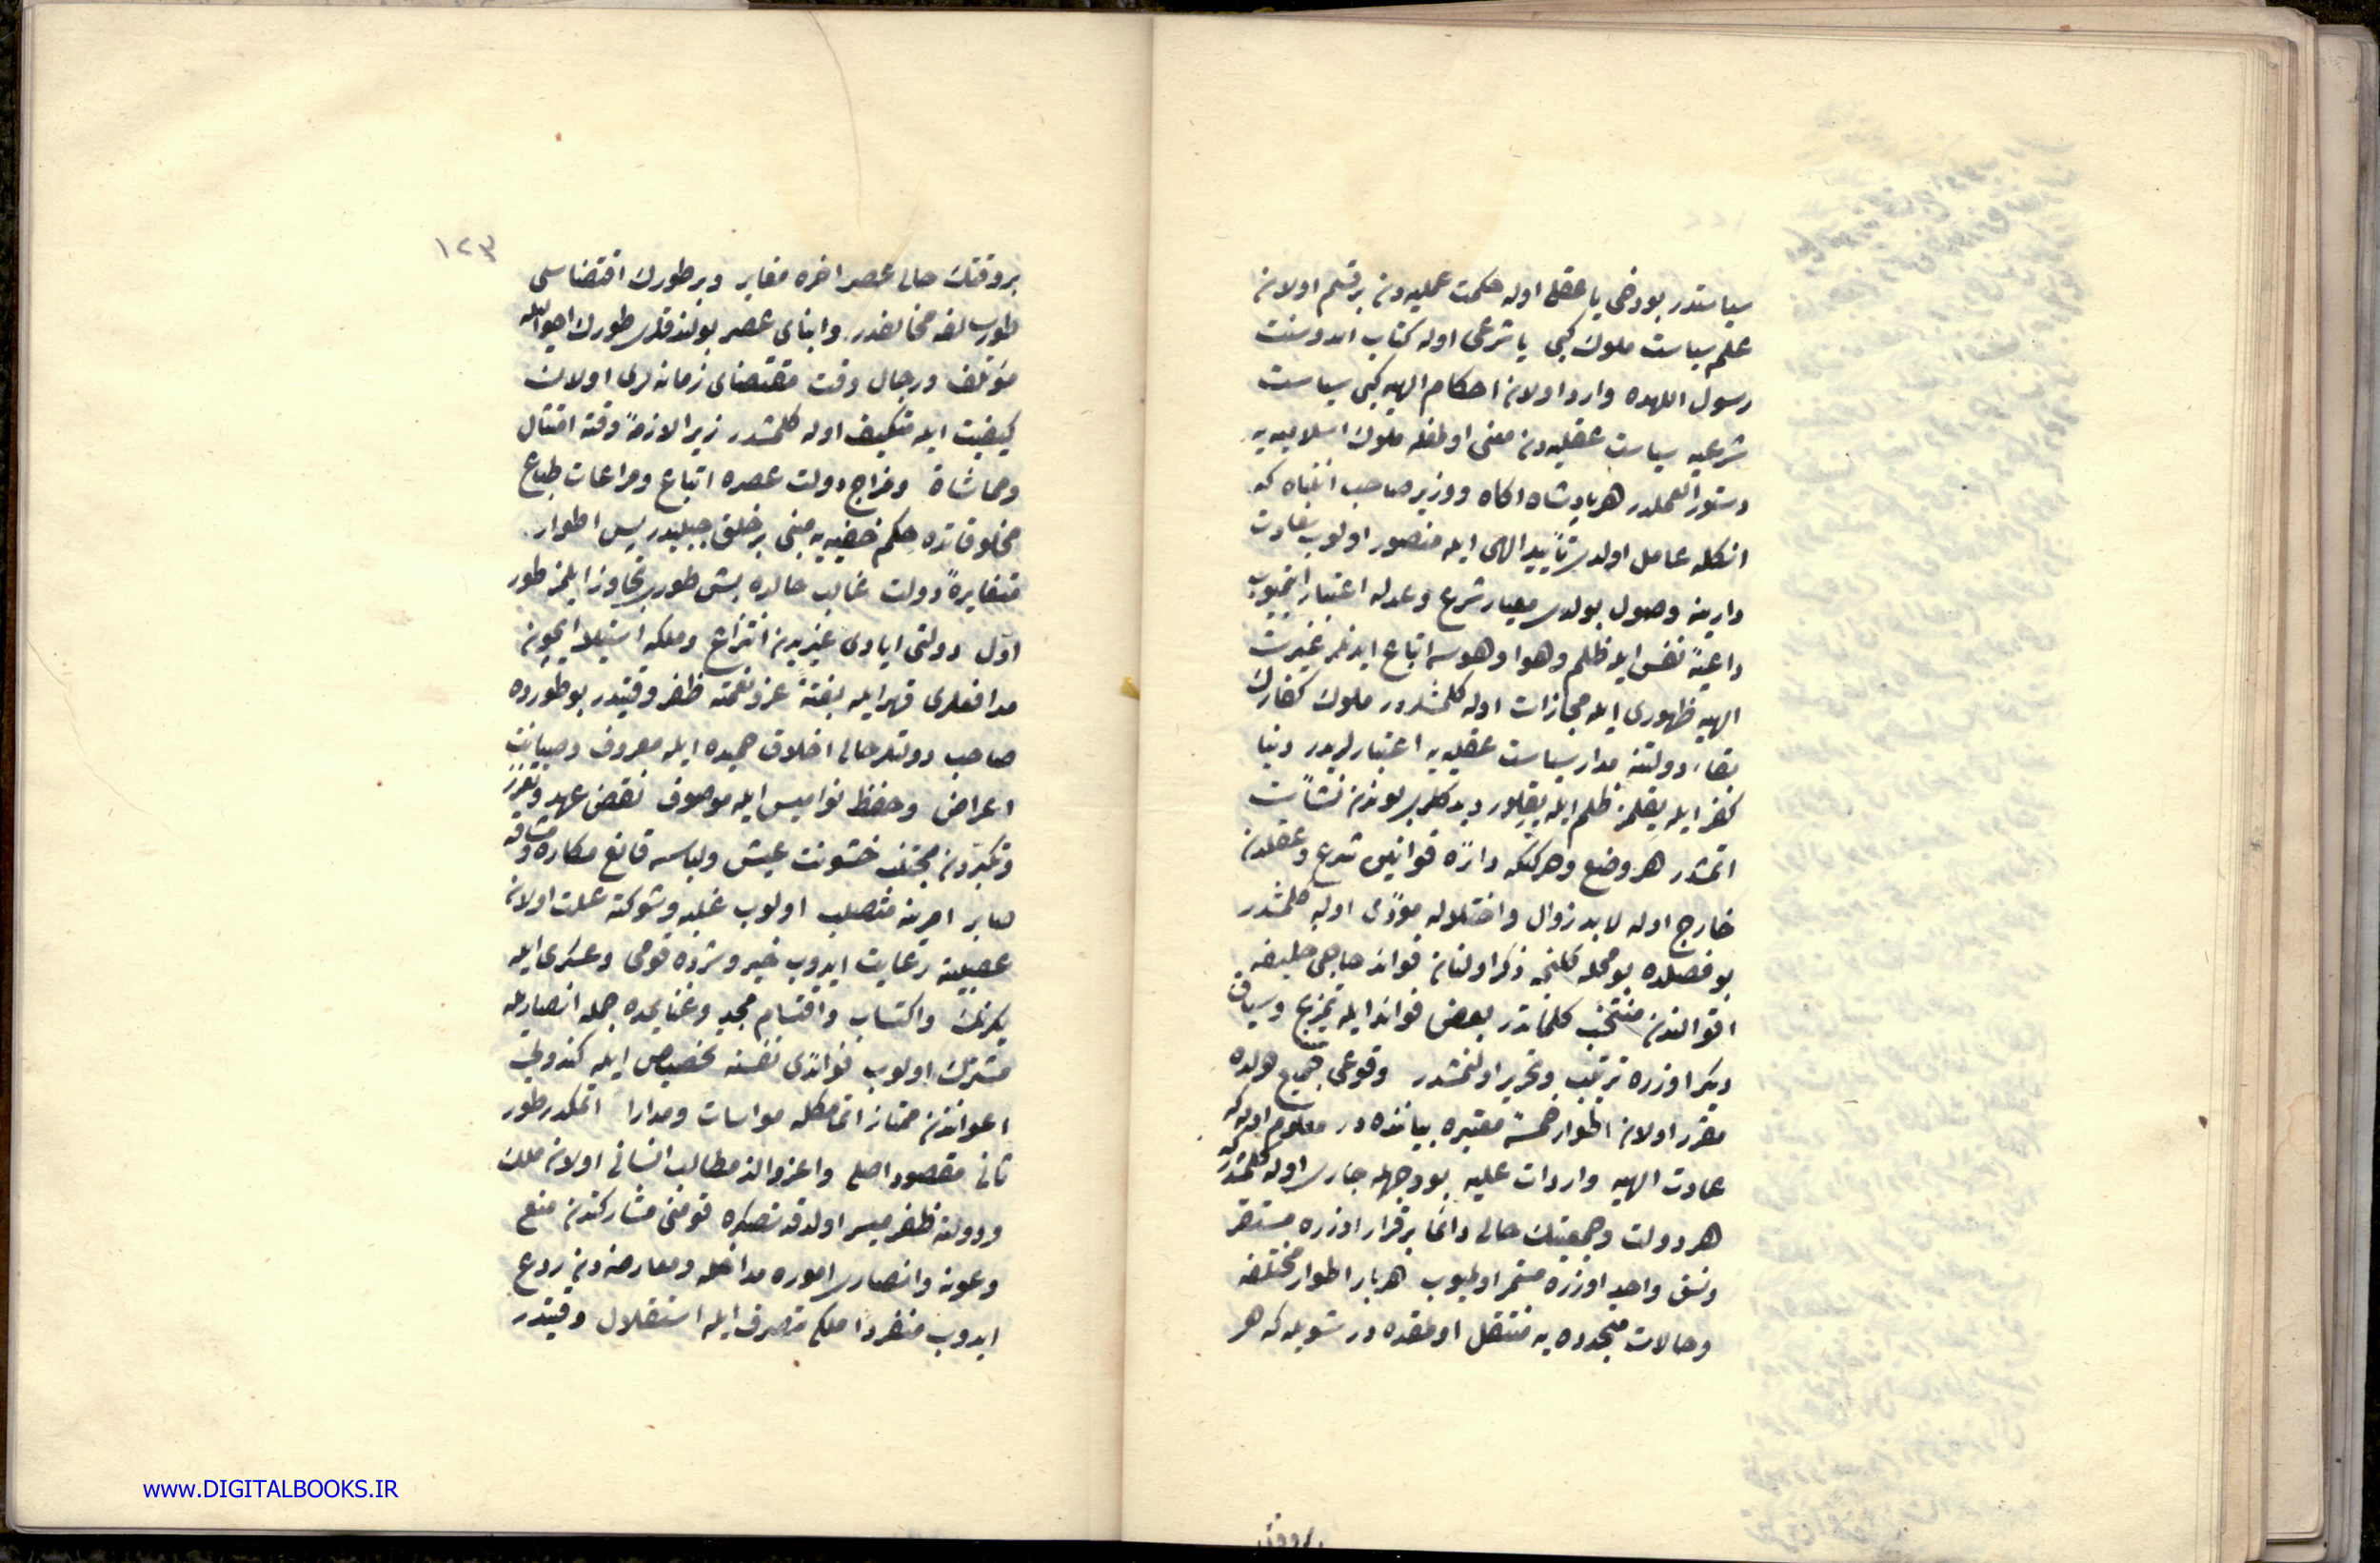 سیاستدر بو دخی یا عقلی اوله حکمت عملیه‌دن بر قسم اولان
علم سیاست ملوك کبی یا شرعی اوله کتاب الله و سنت
رسول اللهده وارد اولان احکام الهیه کبی سیاست
شرعیه سیاست عقلیه‌دن مغنی اولمغله ملوك اسلامیه‌یه
دستور العملدر هر پادشاه اکاه و وزیر صاحب انتباه که
انکله عامل اولدی تأیید الهی ایله منصور اولوب سعادت
دارینه وصول بولدی معیار شرع و عدله اعتبار ایتمیوب
داعیهٔ نفس ایله ظلم و هوا و هوسه اتباع ایدنلر غیرت
الهیه ظهوری ایله مجازات اوله کلمشلردر ملوك کفارك
بقاء دولتنه مدار سیاست عقلیه‌یه اعتبارلریدر دنیا
کفر ایله یقلمز ظلم ایله یقلور دیدکلری بوندن نشأت
اتمشدر هر وضع و حرکتکه دائرهٔ قوانین شرع و عقلدن
خارج اوله لابد زوال و اختلاله مؤدی اوله کلمشدر
بو فصلده بو محله کلنجه ذکر اولنان فوائد حاجی خلیفه
اقوالندن منتخب کلماتدر بعض فوائد ایله تمزیج و سیاق
دیکر اوزره ترتیب و تحریر اولنمشدر وقوعی جمیع دولده
مقرر اولان اطوار خمسهٔ معتبره بیاننده‌در معلوم اوله که
عادت الهیه و ارادات علیه بو وجهله جاری اوله کلمشدر که
هر دولت و جمعیتك حالی دائما بر قرار اوزره مستقر
و نسق واحد اوزره مستمر اولمیوب هر بار اطوار مختلفه
و حالات متجدده‌یه منتقل اولمقده‌در شویله که هر
بر وقتك
١٢٣
بر وقتك حالی عصر اخره مغایر و بر طورك اقتضاسی
طور سالفه مخالفدر و ابنای عصر بولندقلری طورك احوالیله
مؤتلف و رجال وقت مقتضای زمانه‌لری اولان
کیفیت ایله متکیف اوله کلمشدر زیرا لازمهٔ وقته امتثال
و مماشاة و مزاج دولت عصره اتباع و مراعات طباع
مخلوقاتده حکم خفیه‌یه مبنی بر خلق جبلیدر پس اطوار
متغایرهٔ دولت غالب حالده بش طوری تجاوز ایلمز طور
اول دولتی ایادی غیریدن انتزاع و ملکه استیلا ایچون
مدافعلری قهر ایله بغتةً عز و نعمته ظفر وقتیدر بو طورده
صاحب دولتلر حالی اخلاق حمیده ایله معروف و صیانت
اعراض و حفظ نوامیس ایله موصوف نقض عهد و تعزز
و تکبردن مجتنب خشونت عیش و لباسه قانع مکاره و مشاقه
صابر امرینه متصلب اولوب غلبه و شوکته علت اولان
عصبیته رعایت ایدوب خیر و شرده قومی و عسکری ایله
یکرنك و اکتساب و اقتسام مجد و غنایمده جمله انصاریله
مشترك اولوب فوائدی نفسنه تخصیص ایله کندویی
اعوانندن ممتاز اتمامکله مواسات و مدارا اتمکدر طور
ثانی مقصود اصلی و اعز و الذ مطالب انسانی اولان ملك
و دولته ظفر میسر اولدقدنصکره قومنی مشارکتدن منع
و عون و انصاری اموره مداخله و معارضه‌دن ردع
ایدوب منفردا ملکه تصرف ایله استقلال وقتیدر
www.DIGITALBOOKS.IR